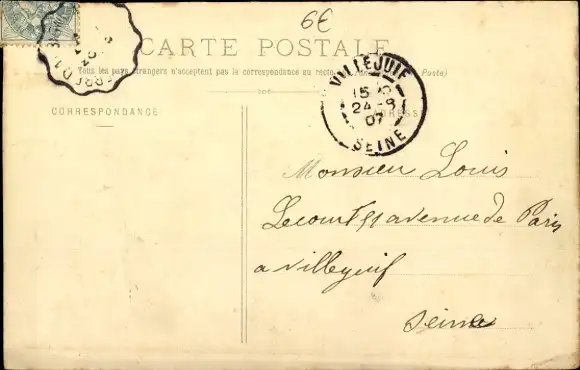 6€
CARTE POSTALE
Tous les pays étrangers n'acceptent pas la correspondance au recto
Poste)
CORRESPONDANCE
ADRESSE
VILLEJUIF
15
24-8
07
SEINE
Monsieur Louis
Lecourt 91 avenue de Paris
a Villejuif
Seine